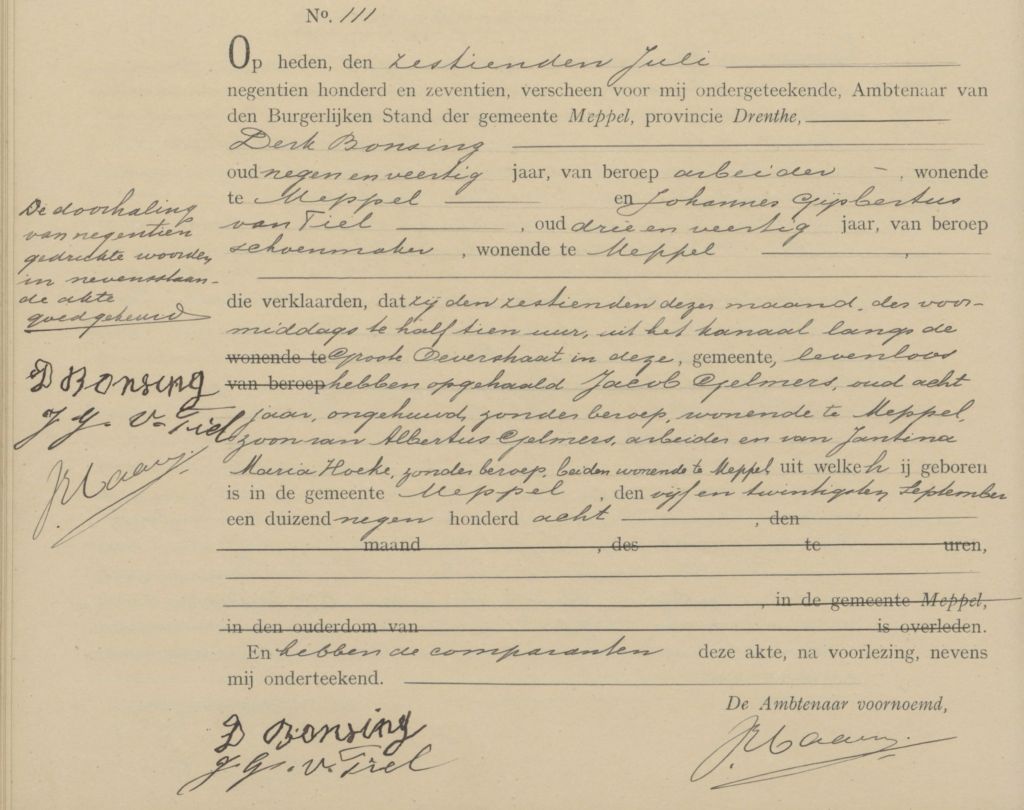 No. 111
Op heden, den zestienden Juli
negentien honderd en zeventien, verscheen voor mij ondergeteekende, Ambtenaar van
den Burgerlijken Stand der gemeente Meppel, provincie Drenthe,
Derk Bonsing
oud negen en veertig jaar, van beroep arbeider, wonende
te Meppel en Johannes Gijsbertus
van Tiel, oud drie en veertig jaar, van beroep
schoenmaker, wonende te Meppel,
die verklaarden, dat zij den zestienden dezer maand, des voor-
middags te half tien uur, uit het kanaal langs de
wonende te Groote Oeverstraat in deze, gemeente, levenloos
van beroep hebben opgehaald Jacob Gjelmers, oud acht
jaar, ongehuwd, zonder beroep, wonende te Meppel,
zoon van Albertus Gjelmers, arbeider en van Jantina
Maria Hoeke, zonder beroep, beiden wonende te Meppel, uit welke hij geboren
is in de gemeente Meppel, den vijf en twintigsten September
een duizend negen honderd acht, den
maand, des te uren,
, in de gemeente Meppel,
in den ouderdom van is overleden.
En hebben de comparanten deze akte, na voorlezing, nevens
mij onderteekend.
De Ambtenaar voornoemd,
D Bonsing
J. G. v. Tiel
De doorhaling
van negentien
gedrukte woorden
in nevensstaan-
de akte
goedgekeurd
D Bonsing
J. G. v. Tiel